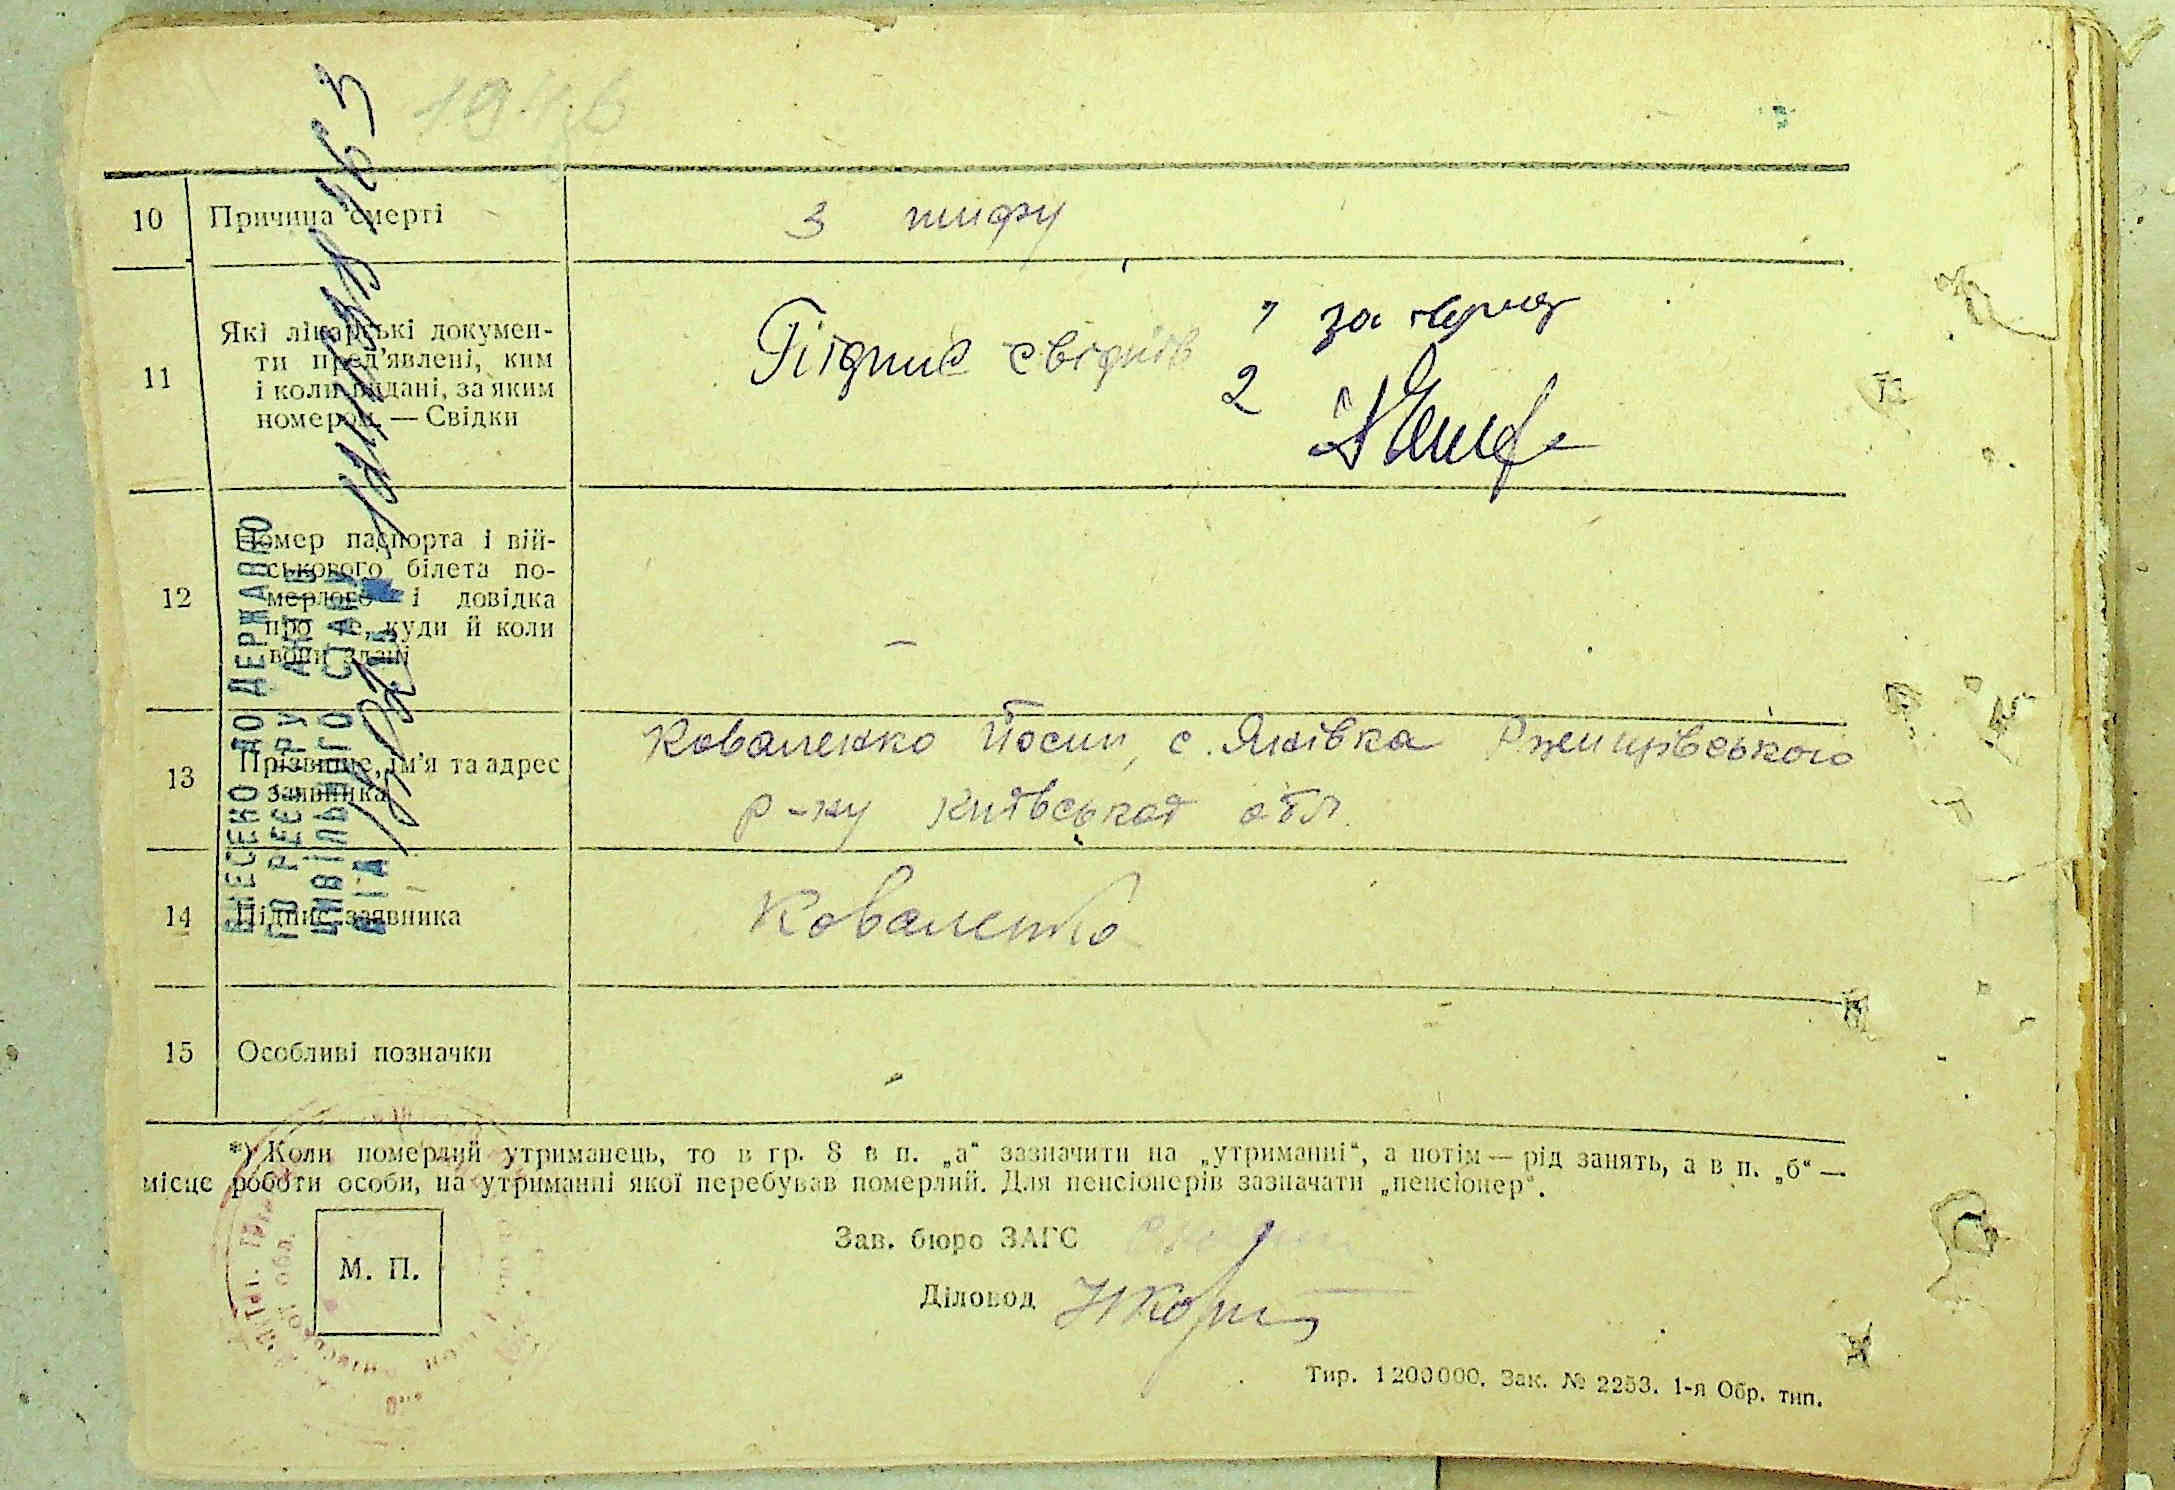 1946
10 Причина смерті
з тифу
11 Які лікарські докумен-
ти пред'явлені, ким
і коли видані, за яким
номером. — Свідки
Підпис свідків 1
2
12 Номер паспорта і вій-
ськового білета по-
мерлого і довідка
про те, куди й коли
вони здані
—
13 Прізвище, ім'я та адрес
заявника
Коваленко Йосип, с. Янівка Ржищівського
р-ну Київської обл.
14 Підпис заявника
Коваленко
15 Особливі позначки
ВНЕСЕНО ДО ДЕРЖАВНО
ГО РЕЄСТРУ АКТІВ
ЦИВІЛЬНОГО СТАНУ
*) Коли померлий утриманець, то в гр. 8 в п. „а“ зазначити на „утриманні“, а потім — рід занять, а в п. „б“ —
місце роботи особи, на утриманні якої перебував померлий. Для пенсіонерів зазначати „пенсіонер“.
М. П.
Зав. бюро ЗАГС
Діловод
Тир. 1 200 000. Зак. № 2253. 1-я Обр. тип.